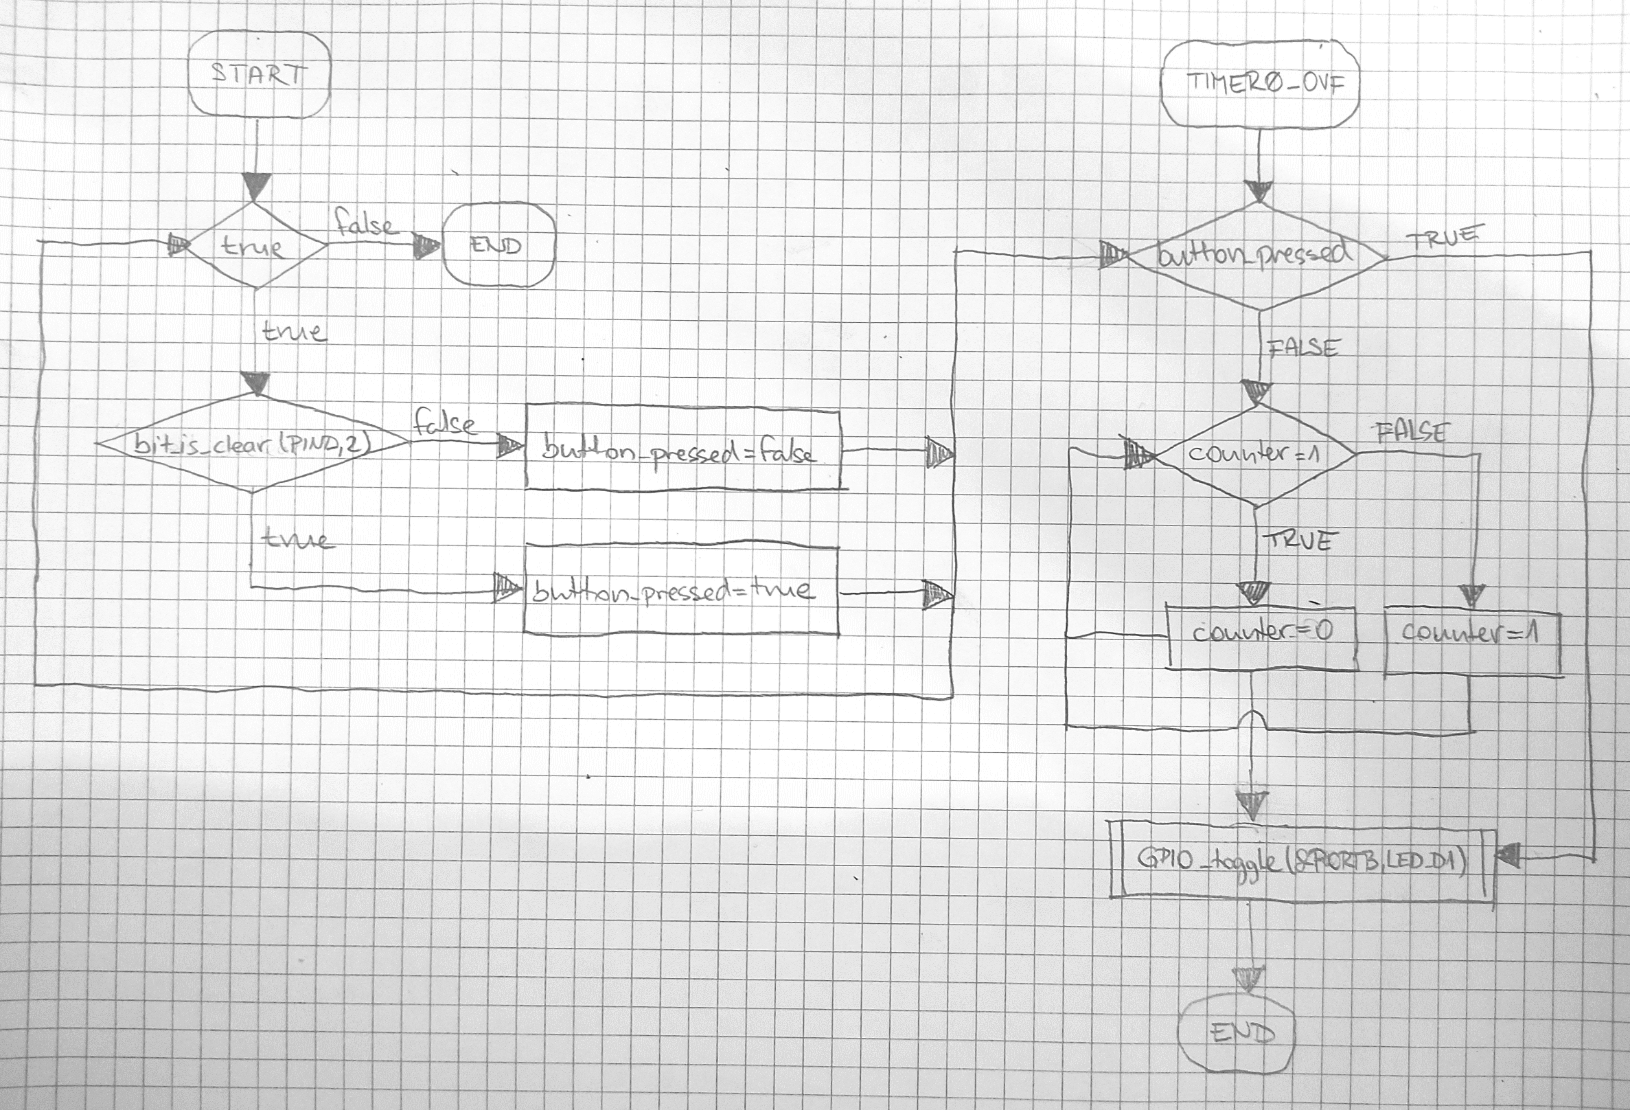 START
true
false
END
true
bit_is_clear(PIND,2)
false
button_pressed=false
true
button_pressed=true
TIMER0_OVF
button_pressed
TRUE
FALSE
counter=1
FALSE
TRUE
counter=0
counter=1
GPIO_toggle(&PORTB,LED_D1)
END